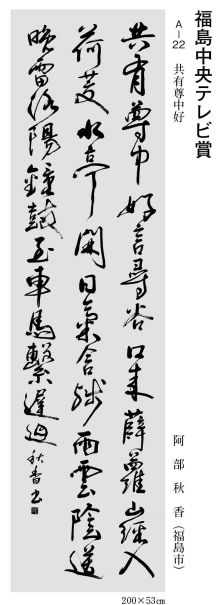 福島中央テレビ賞
A−22 共有尊中好
阿部秋香（福島市）
共有尊中好言尋谷口来薜蘿山徑入
荷芰水亭開日氣含殘雨雲陰送
晩雷洛陽鐘鼓至車馬繫遲迴 秋香書
200×53cm